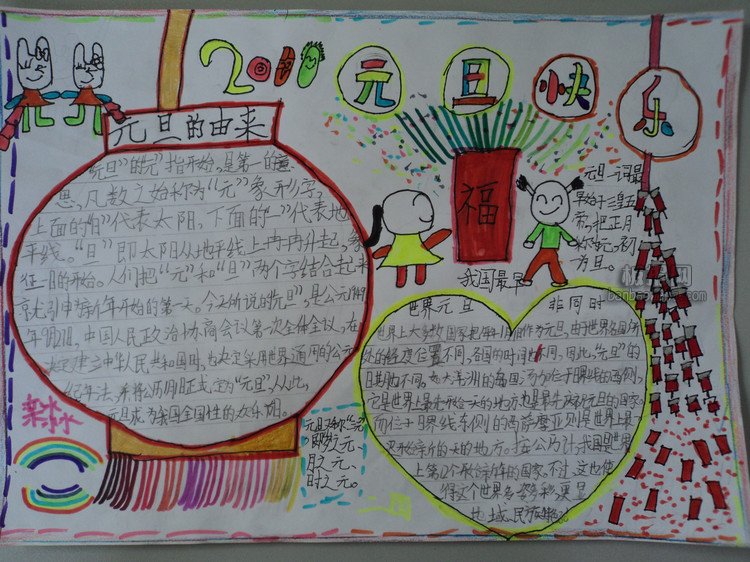 2011 元旦快乐
元旦的由来
"元旦"的"元"指开始,是第一的意
思,凡数之始称为"元"象形字,
上面的"日"代表太阳,下面的"一"代表地
平线。"旦"即太阳从地平线上冉冉升起,象
征一日的开始。人们把"元"和"旦"两个字结合起来
就引申为新年开始的第一天。今天所说的"元旦",是公元1949
年9月27日,中国人民政治协商会议第一次全体会议,在
决定建立中华人民共和国时,也决定采用世界通用的公元
纪年法,并将公历1月1日正式定为"元旦",从此,
元旦成为我国全国性的欢乐节。
福
元旦一词最
早始于三皇五
帝,把正月
称为元,初一
为旦。
我国最早
元旦又称"三元"
即岁之元、
月之元、
时之元。
世界元旦 非同时
世界上大多数国家把每年1月1日作为元旦,由于世界各国所
处的经度位置不同,各国的时间也不同,因此,"元旦"的
日期也不同。如大洋洲的岛国汤加位于日界线的西侧,
它是世界上最先开始一天的地方,也是最先庆祝元旦的国家。
而位于日界线东侧的西萨摩亚则是世界上最
迟开始新的一天的地方。按公历计,我国是世界
上第12个开始新年的国家,不过,这也使
得这个世界多姿多彩,更显
地域、民族